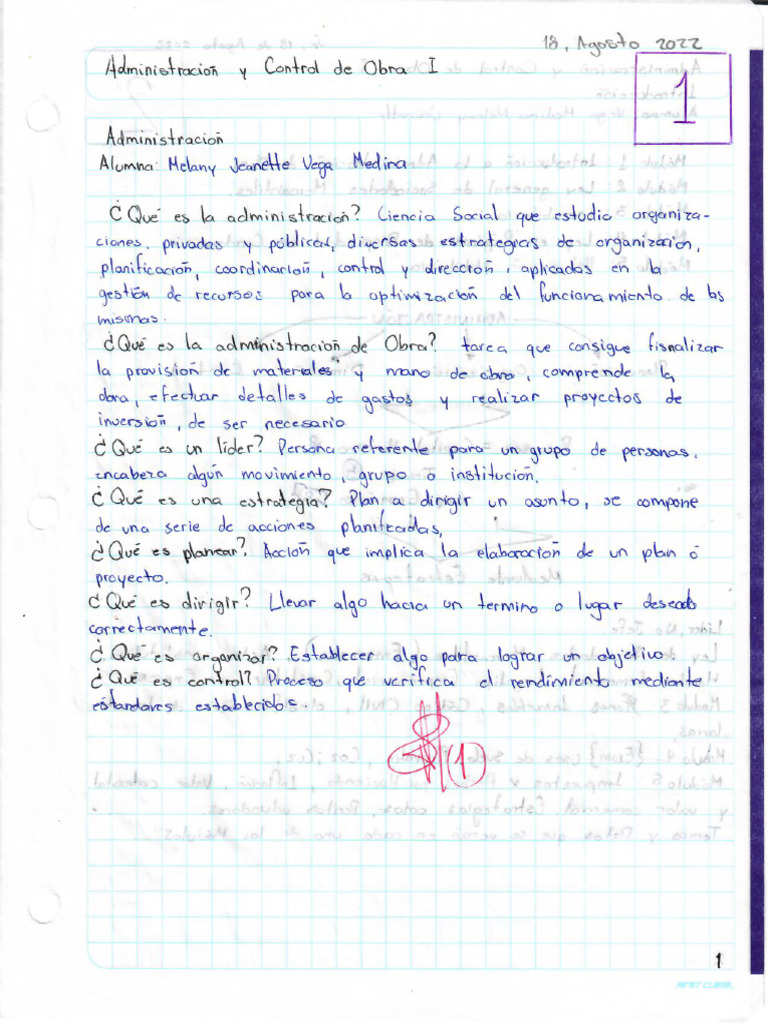 18, Agosto 2022
Administración y Control de Obra I
1
Administración
Alumna: Melany Jeanette Vega Medina
¿Qué es la administración? Ciencia Social que estudia organiza-
ciones, privadas y públicas, diversas estrategias de organización,
planificación, coordinación, control y dirección, aplicadas en la
gestión de recursos para la optimización del funcionamiento de las
mismas.
¿Qué es la administración de Obra? tarea que consigue fisnalizar
la provisión de materiales y mano de obra, comprende la
obra, efectuar detalles de gastos y realizar proyectos de
inversión, de ser necesario
¿Qué es un líder? Persona referente para un grupo de personas,
encabeza algún movimiento, grupo o institución.
¿Qué es una estrategia? Plan a dirigir un asunto, se compone
de una serie de acciones planificadas,
¿Qué es planear? Acción que implica la elaboración de un plan o
proyecto.
¿Qué es dirigir? Llevar algo hacia un termino o lugar deseado
correctamente.
¿Qué es organizar? Establecer algo para lograr un objetivo.
¿Qué es control? Proceso que verifica el rendimiento mediante
estándares establecidos.
(1)
1